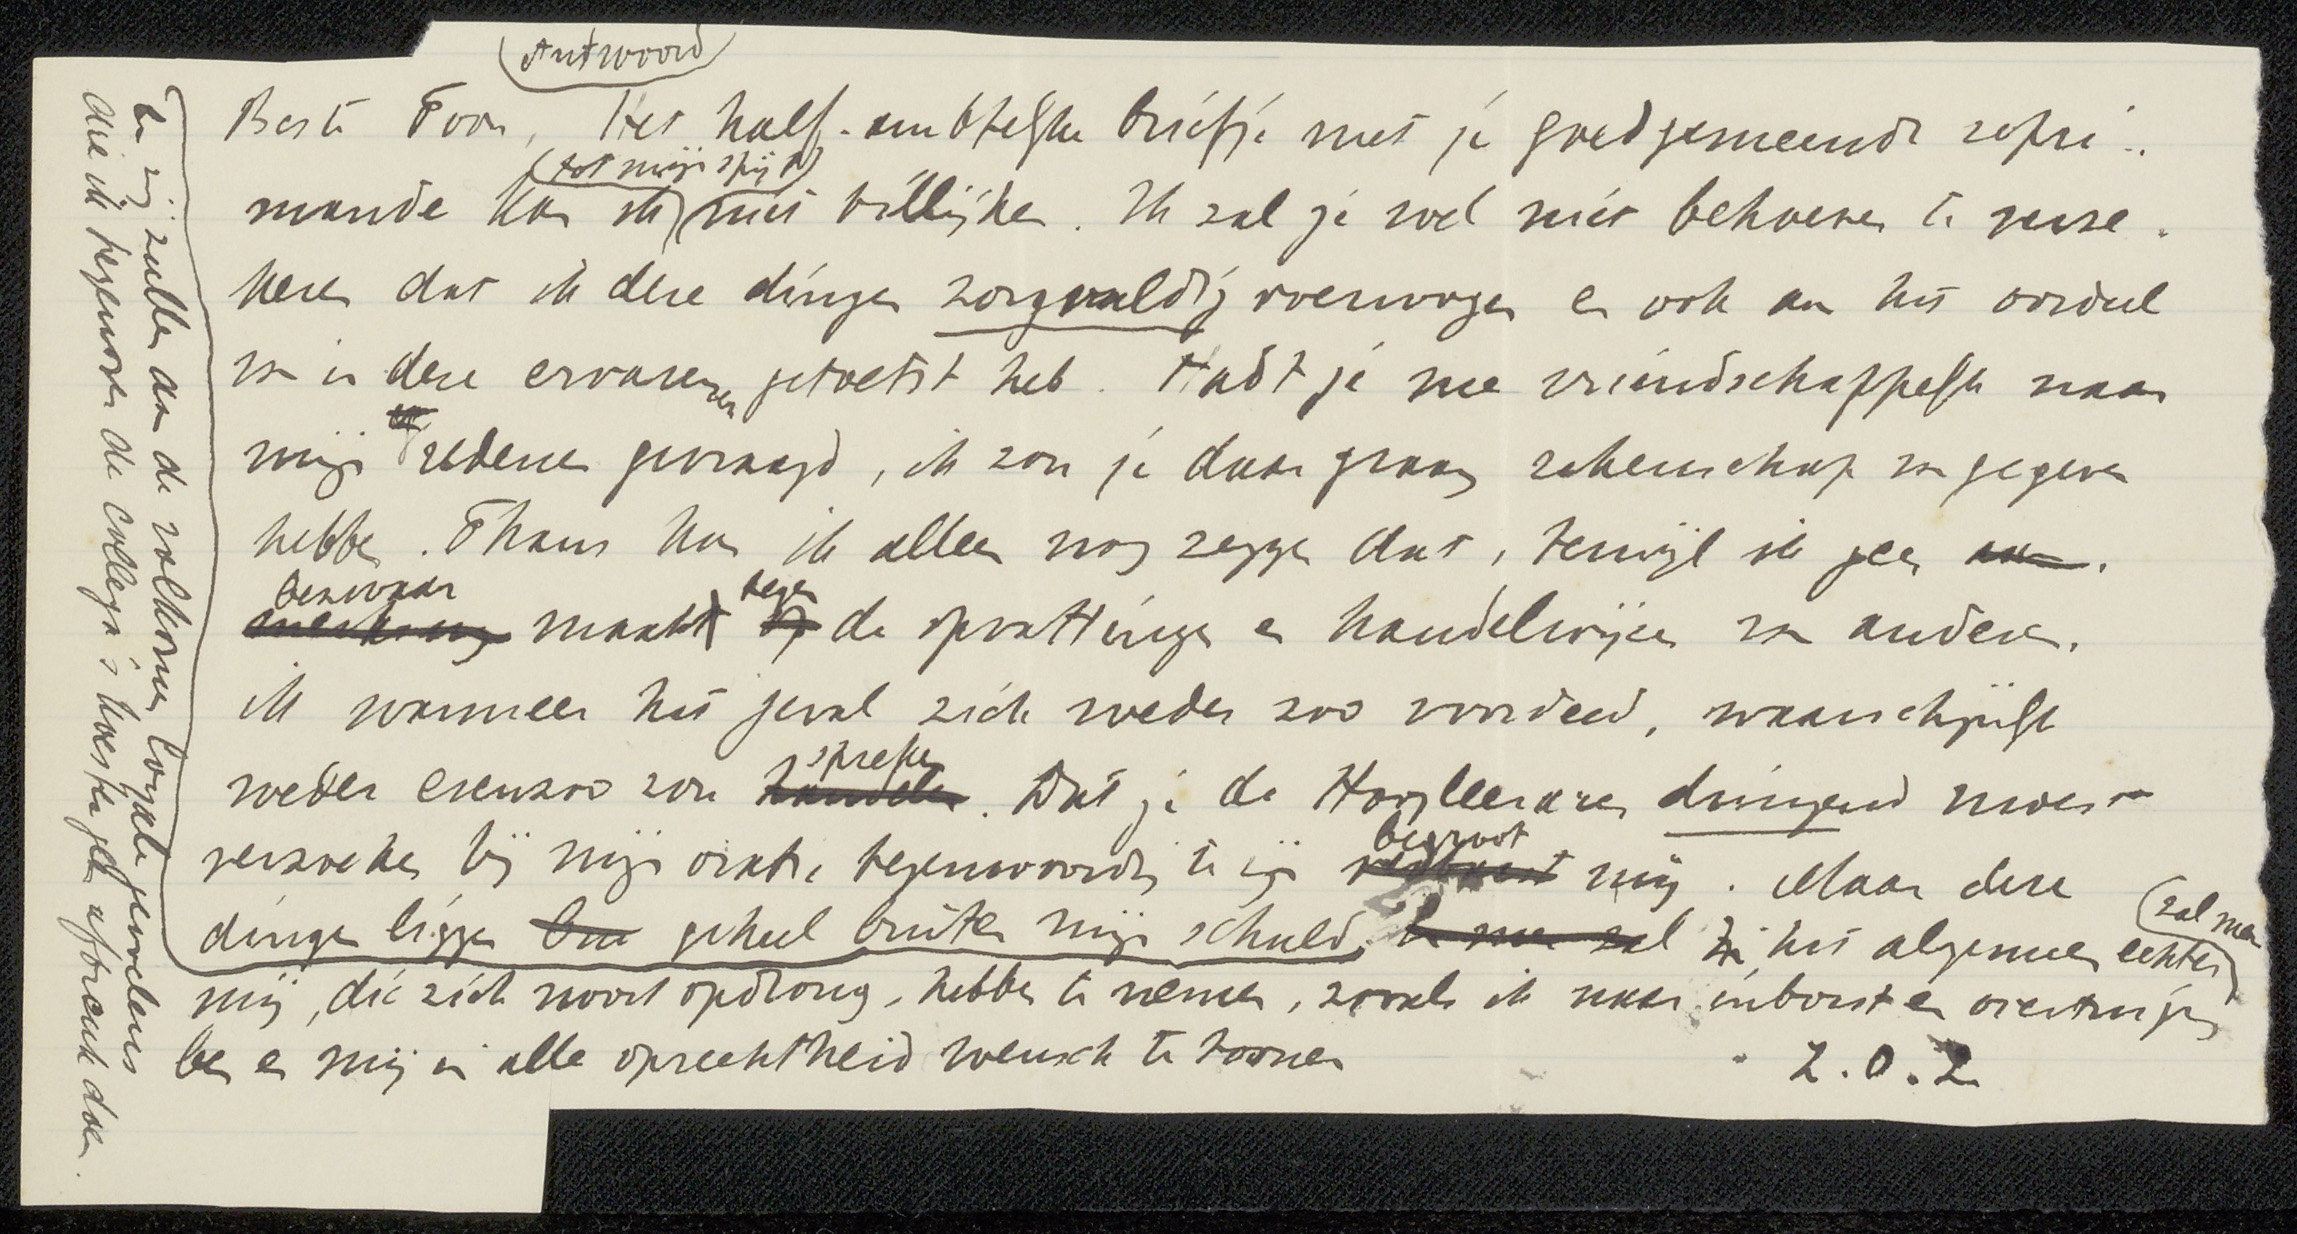 Antwoord
Beste Toon, Het half-ambtelijke briefje met je goedgemeende repri-
(tot mijn spijt)
mande kan ik niet billijken. Ik zal je wel niet behoeven te verze-
keren dat ik deze dingen zorgvuldig overwogen en ook aan het oordeel
van in deze ervarenen getoetst heb. Hadt je me vriendschappelijk naar
mijn redenen gevraagd, ik zou je daar graag rekenschap van gegeven
hebben. Thans kan ik alleen nog zeggen dat, terwijl ik geen aan-
bezwaar tegen
merking maakt op de opvattingen en handelwijzen van anderen,
ik wanneer het geval zich weder zoo voordeed, waarschijnlijk
spreken
weder evenzoo zou handelen. Dat je de Hoogleeraren dringend moest
begroot
verzoeken bij mijn oratie tegenwoordig te zijn mij. Maar deze
zal men
dingen liggen geheel buiten mijn schuld. En men zal in het algemeen echter
mij, die zich nooit opdrong, hebben te nemen, zooals ik naar inborst en overtuiging
ben en mij in alle oprechtheid wensch te toonen
Z.O.Z.
En zij zullen aan de volkomen loyale gevoelens
die ik tegenover de collega's koester geen afbreuk doen.